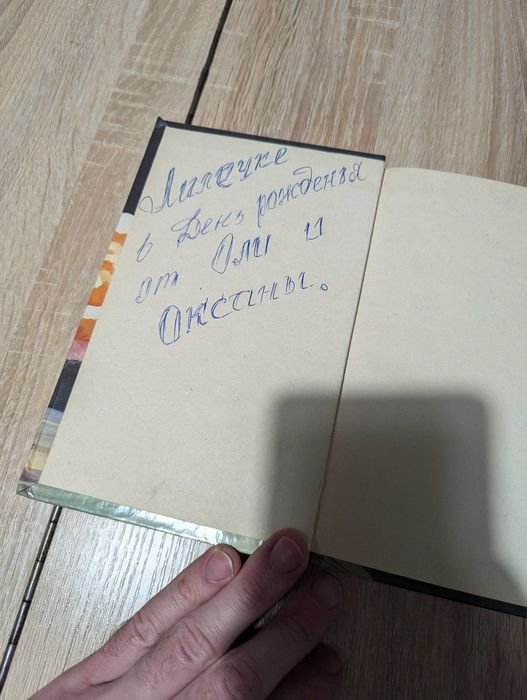 Лилечке
в День рожденья
от Оли и
Оксаны.